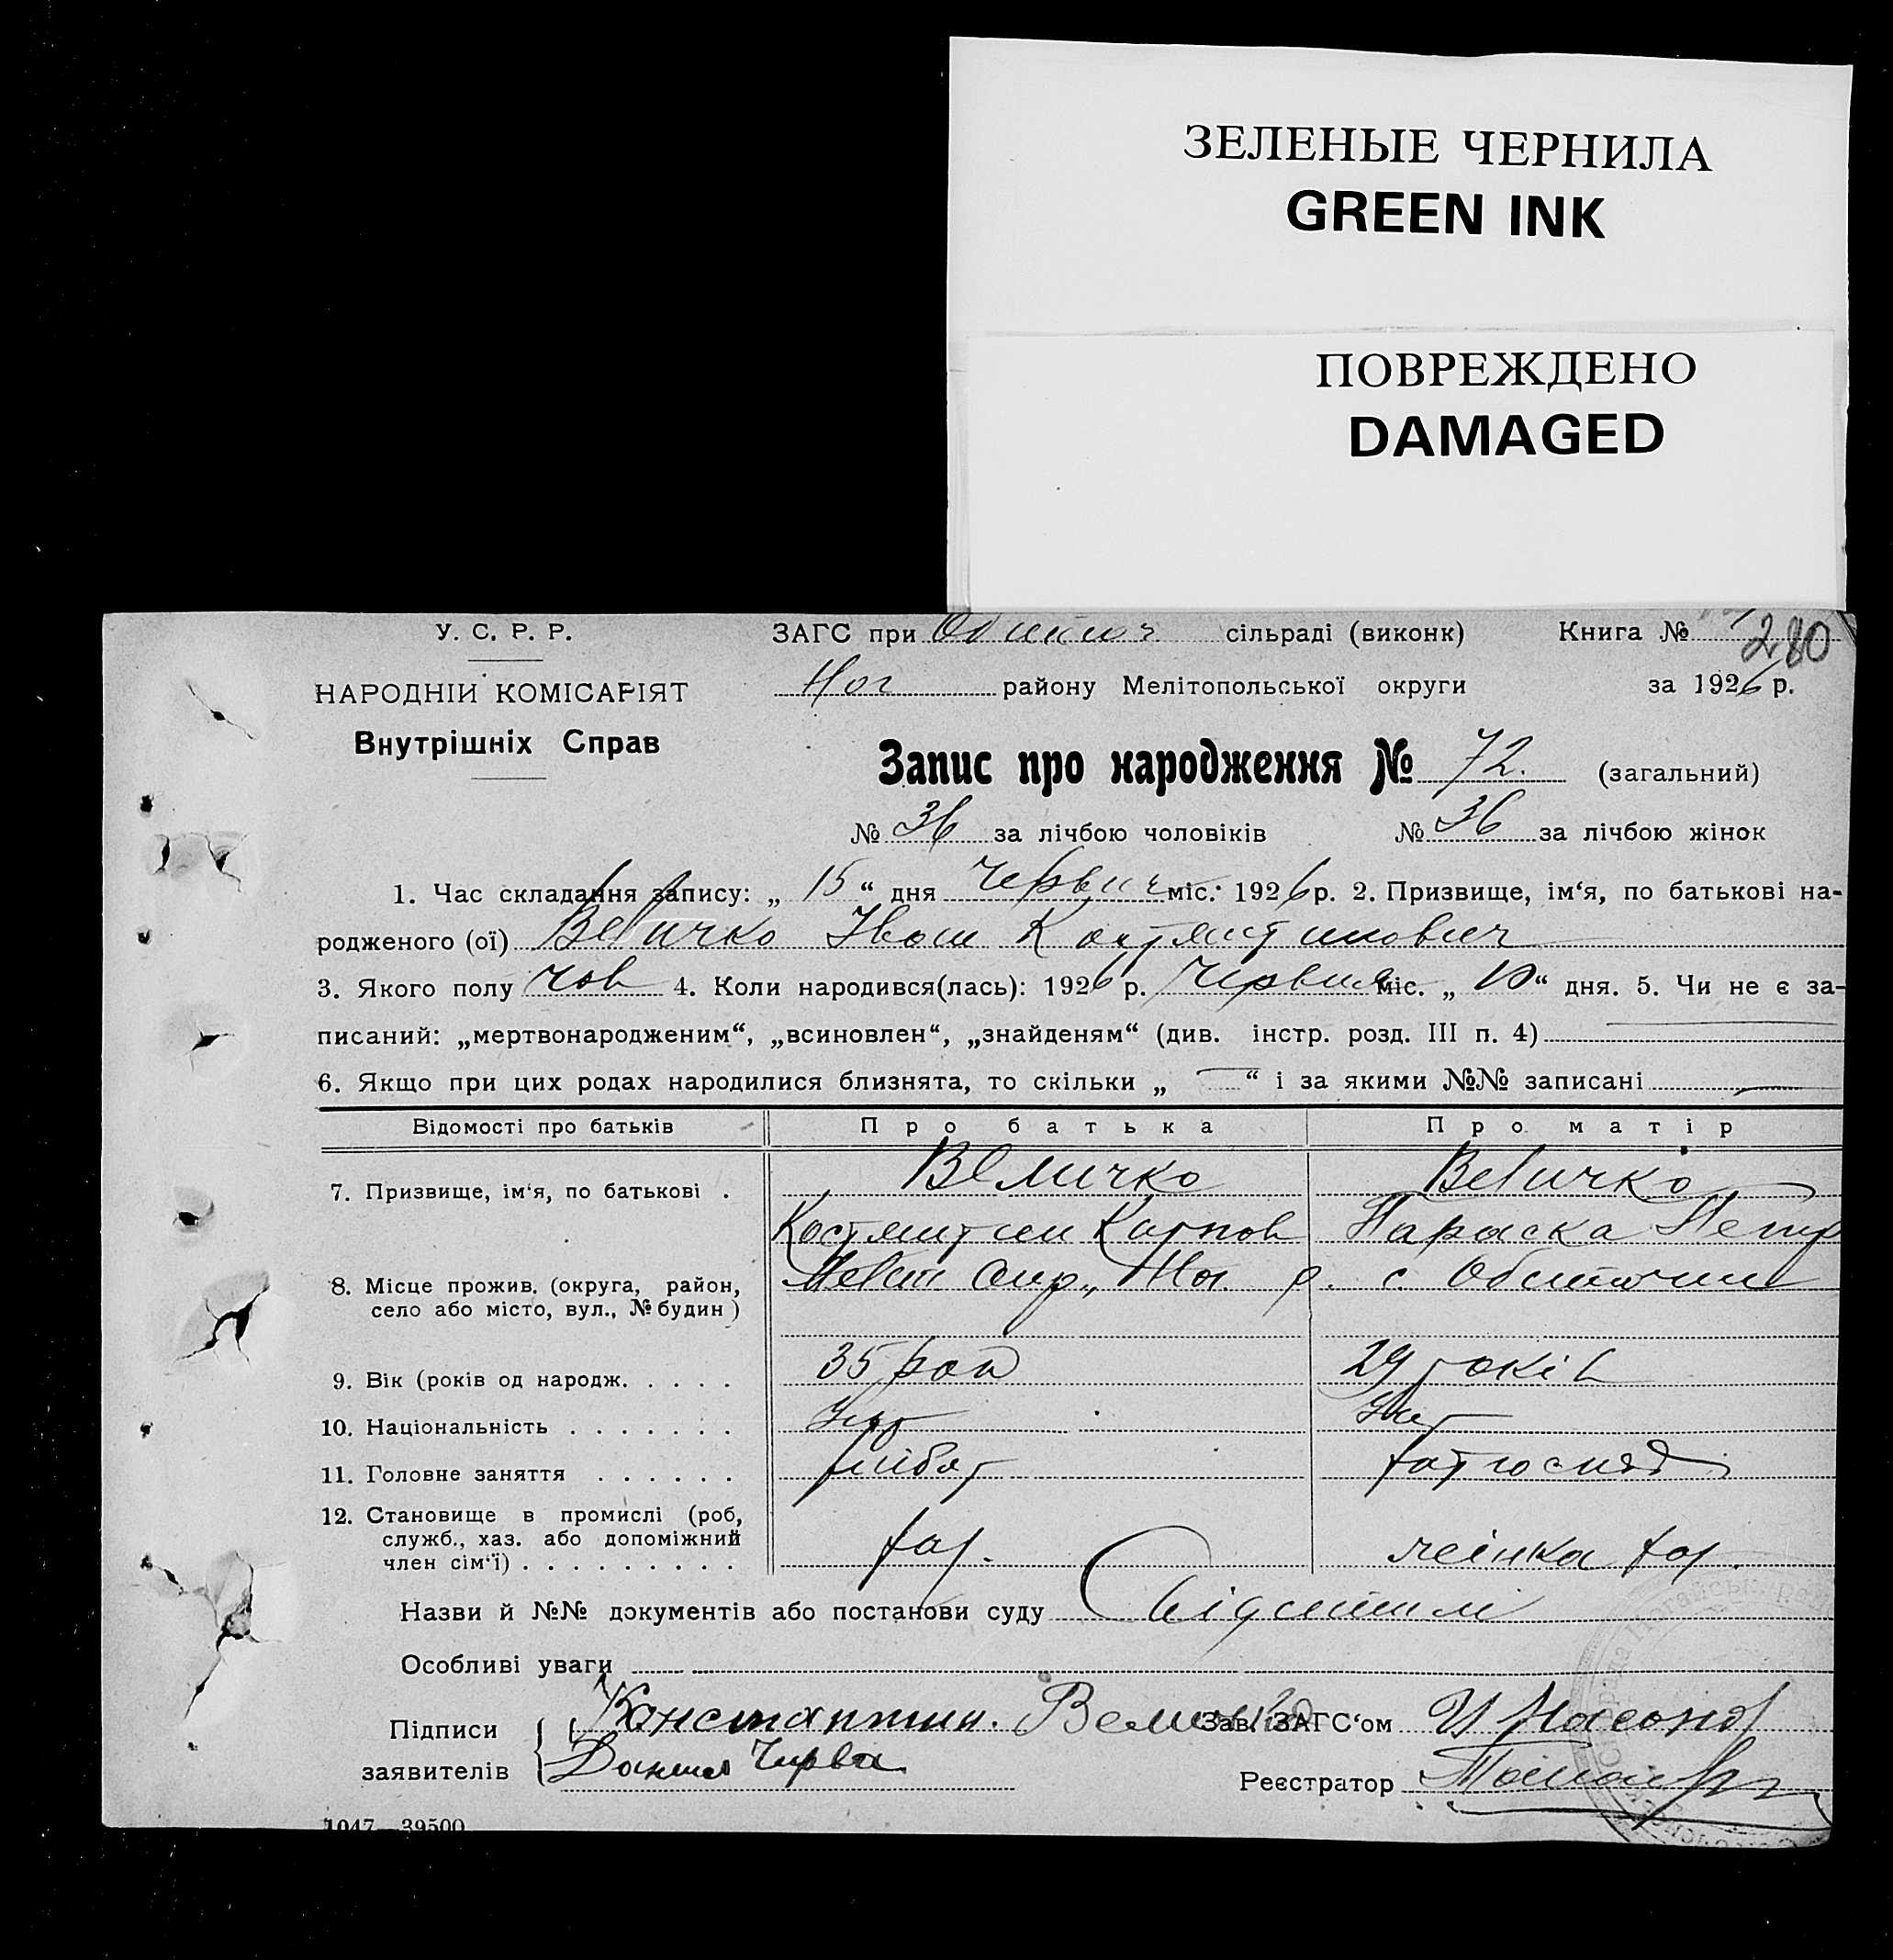 ЗЕЛЕНЫЕ ЧЕРНИЛА
GREEN INK
ПОВРЕЖДЕНО
DAMAGED
У. С. Р. Р.
ЗАГС при сільраді (виконк) Книга № 280
НАРОДНІЙ КОМІСАРІЯТ
Внутрішніх Справ
Ног району Мелітопольської округи за 1926 р.
Запис про народження № 72. (загальний)
№ 36 за лічбою чоловіків № 36 за лічбою жінок
1. Час складання запису: „ 15 “ дня Червня міс. 1926 р. 2. Призвище, ім‘я, по батькові на-
родженого (ої) Величко Іван
3. Якого полу чов 4. Коли народився(лась): 1926 р. Червня міс. „ 10 “ дня. 5. Чи не є за-
писаний: „мертвонародженим“, „всиновлен“, „знайденям“ (див. інстр. розд. III п. 4)
6. Якщо при цих родах народилися близнята, то скільки „ “ і за якими №№ записані
Відомості про батьків Про батька Про матір
7. Призвище, ім‘я, по батькові . Величко Величко
Костянтин Карпов Параска Петр
8. Місце прожив. (округа, район, Меліт Окр., Ног. р. с.
село або місто, вул., № будин)
9. Вік (років од народж. . . . . 35 рок 29 років
10. Національність . . . . . . . Укр Укр
11. Головне заняття . . . . . . хлібор
12. Становище в промислі (роб,
служб., хаз. або допоміжний
член сім‘ї) . . . . . . . . . хаз. жінка хаз.
Назви й №№ документів або постанови суду
Особливі уваги
Підписи Константин. Величко Зав. ЗАГС‘ом
заявителів Данил Чирва Реєстратор
1047—39500